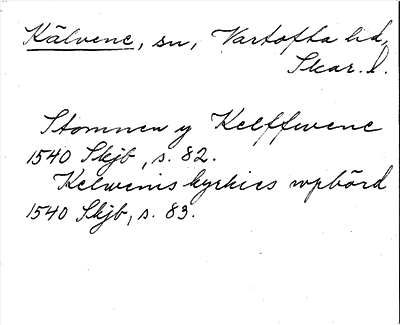 Kälvene, sn, Vartofta hd,
Skar. l.
Stomnen y Kelffwene
1540 Skjb, s. 82.
Kelwenis kyrkies wpbörd
1540 Skjb, s. 83.